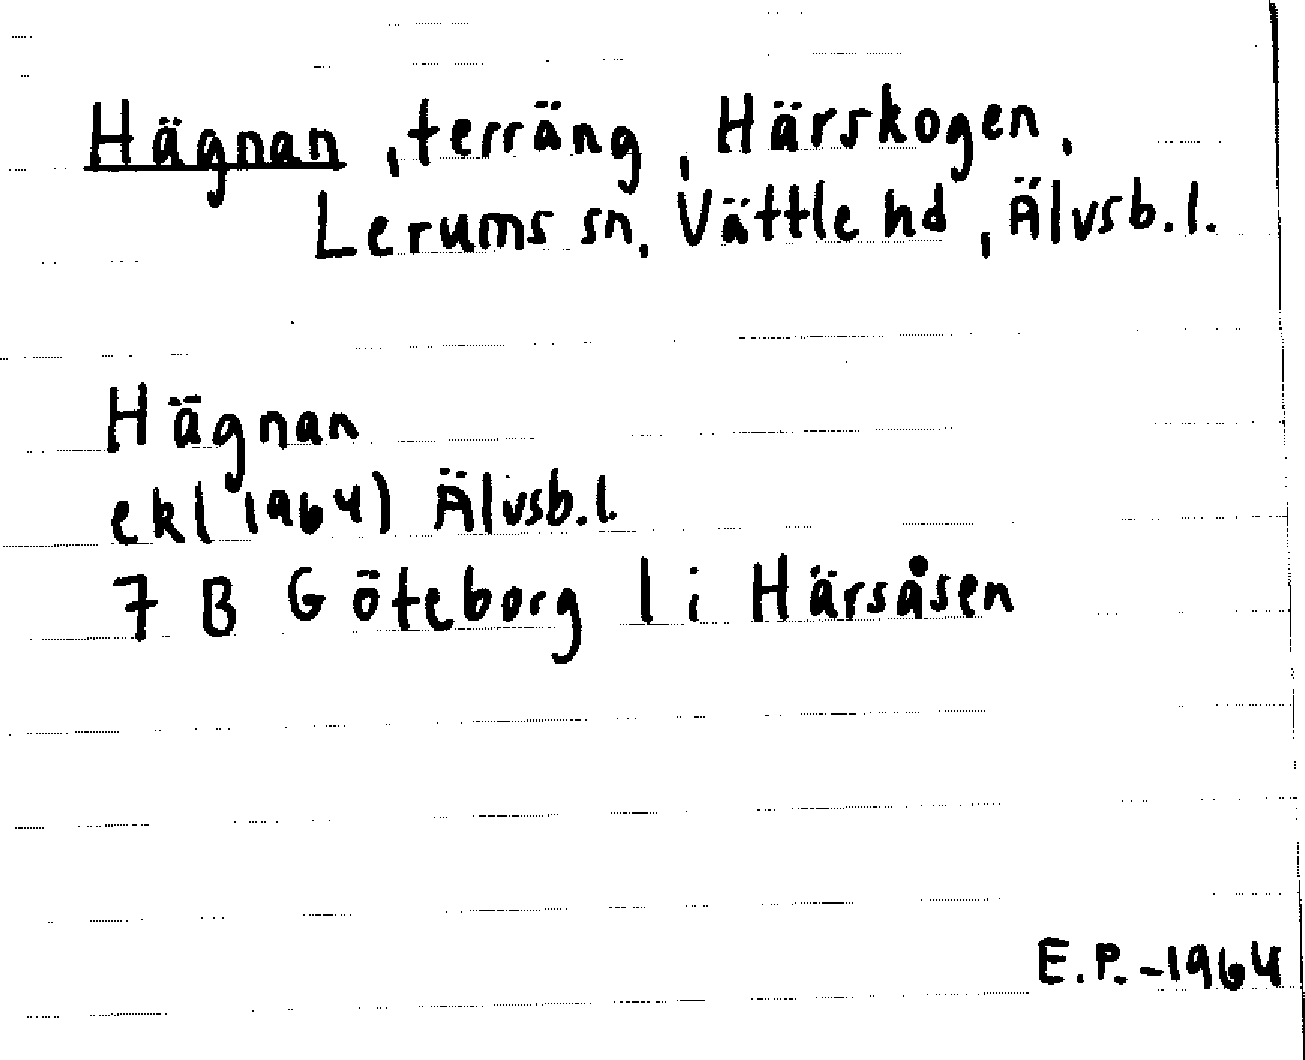 Hägnan, terräng, Härskogen,
Lerums sn, Vättle hd, Älvsb.l.
Hägnan
ekl 1964) Älvsb.l.
7 B Göteborg l i Härsåsen
E.P. -1964